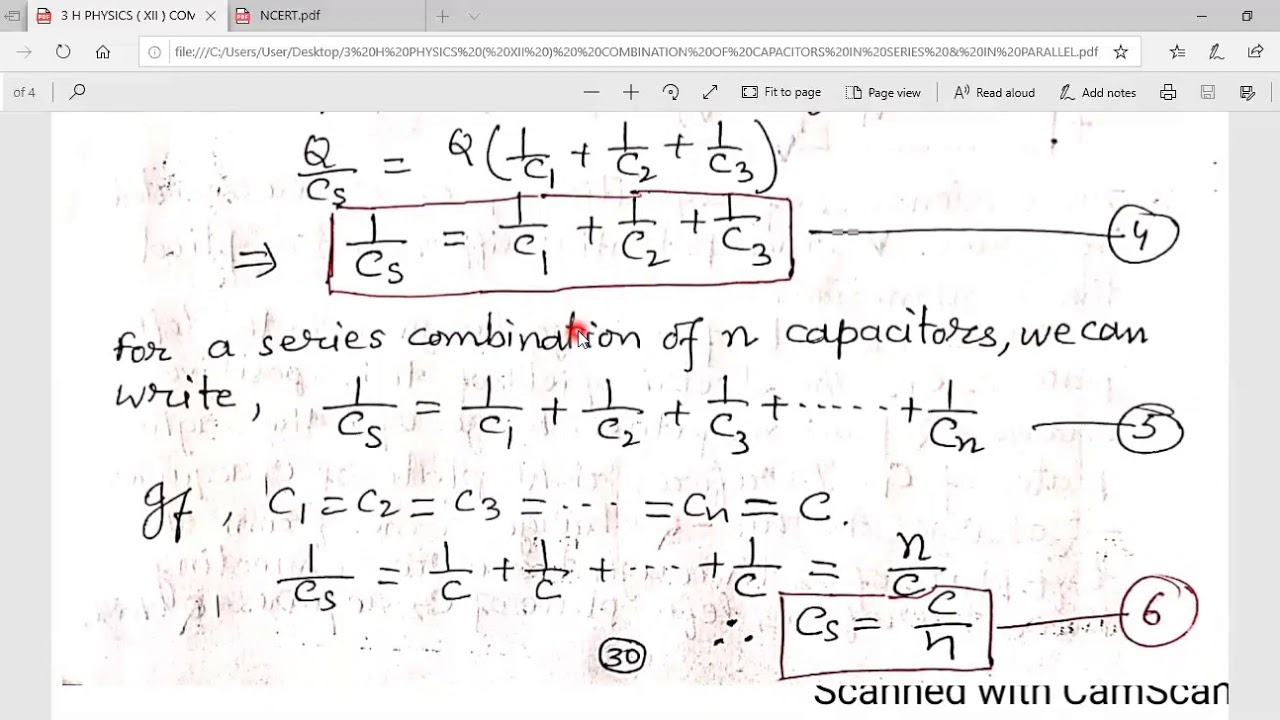 3 H PHYSICS ( XII ) COM
NCERT.pdf
file:///C:/Users/User/Desktop/3%20H%20PHYSICS%20(%20XII%20)%20%20COMBINATION%20OF%20CAPACITORS%20IN%20SERIES%20&%20IN%20PARALLEL.pdf
of 4
Fit to page
Page view
Read aloud
Add notes
Q/Cs = Q(1/C1 + 1/C2 + 1/C3)
⇒ 1/Cs = 1/C1 + 1/C2 + 1/C3 4
for a series combination of n capacitors, we can
write, 1/Cs = 1/C1 + 1/C2 + 1/C3 + ...... + 1/Cn 5
If, C1 = C2 = C3 = ... = Cn = C.
1/Cs = 1/C + 1/C + ... + 1/C = n/C
∴ Cs = C/n 6
30
Scanned with CamScan